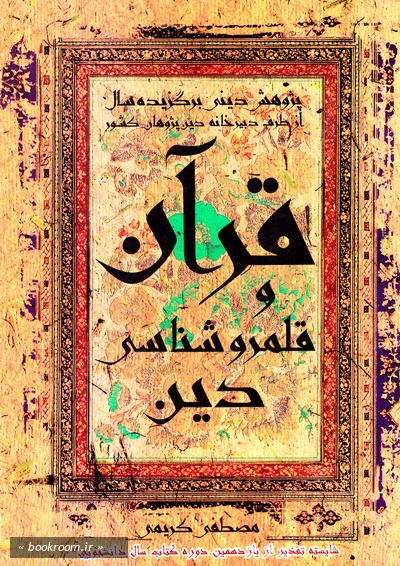 پژوهش دینی برگزیده سال
از طرف دبیرخانه دین پژوهان کشور
قرآن
و
قلمرو شناسی
دین
مصطفی کریمی
شایسته تقدیر از یازدهمین دوره کتاب سال دانشجویی
« bookroom.ir »